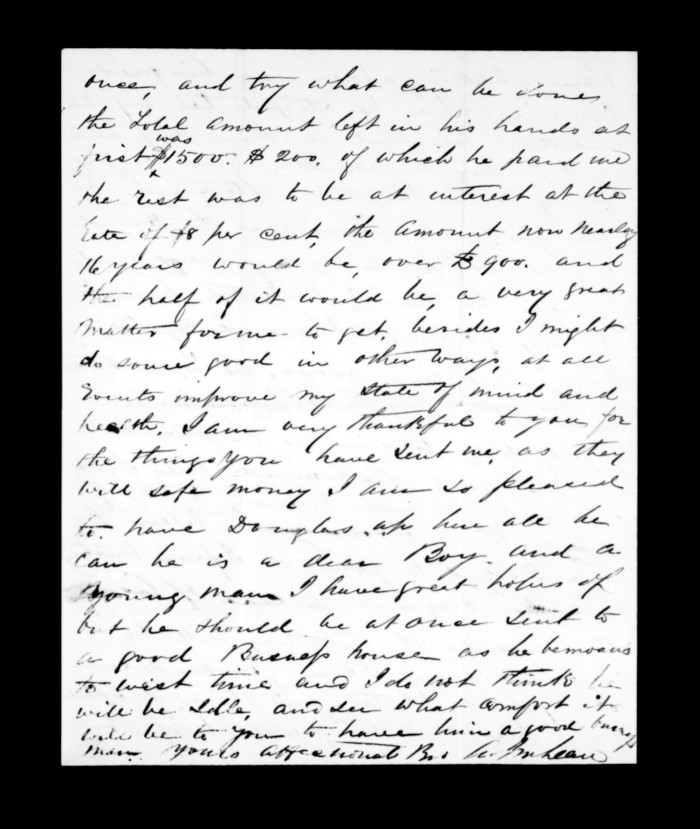 once, and try what can be done,
the Total amount left in his hands at
first was $1500. $200. of which he paid me
the rest was to be at interest at the
Rate of 8 per cent, the amount now nearly
16 years would be, over $900. and
the half of it would be, a very great
Matter for me to get, besides I might
do some good in other ways, at all
Events improve my state of mind and
health, I am very thankful to you for
the things you have sent me, as they
will safe money I am so pleased
to have Douglas up here all he
can he is a dear Boy and a
young man I have great hopes of
but he should be at once sent to
a good Busness house as he bemoans
to west time and I do not think he
will be Idle, and see what comfort it
will be to you to have him a good busness
man yours affectionat Bro A. McLean